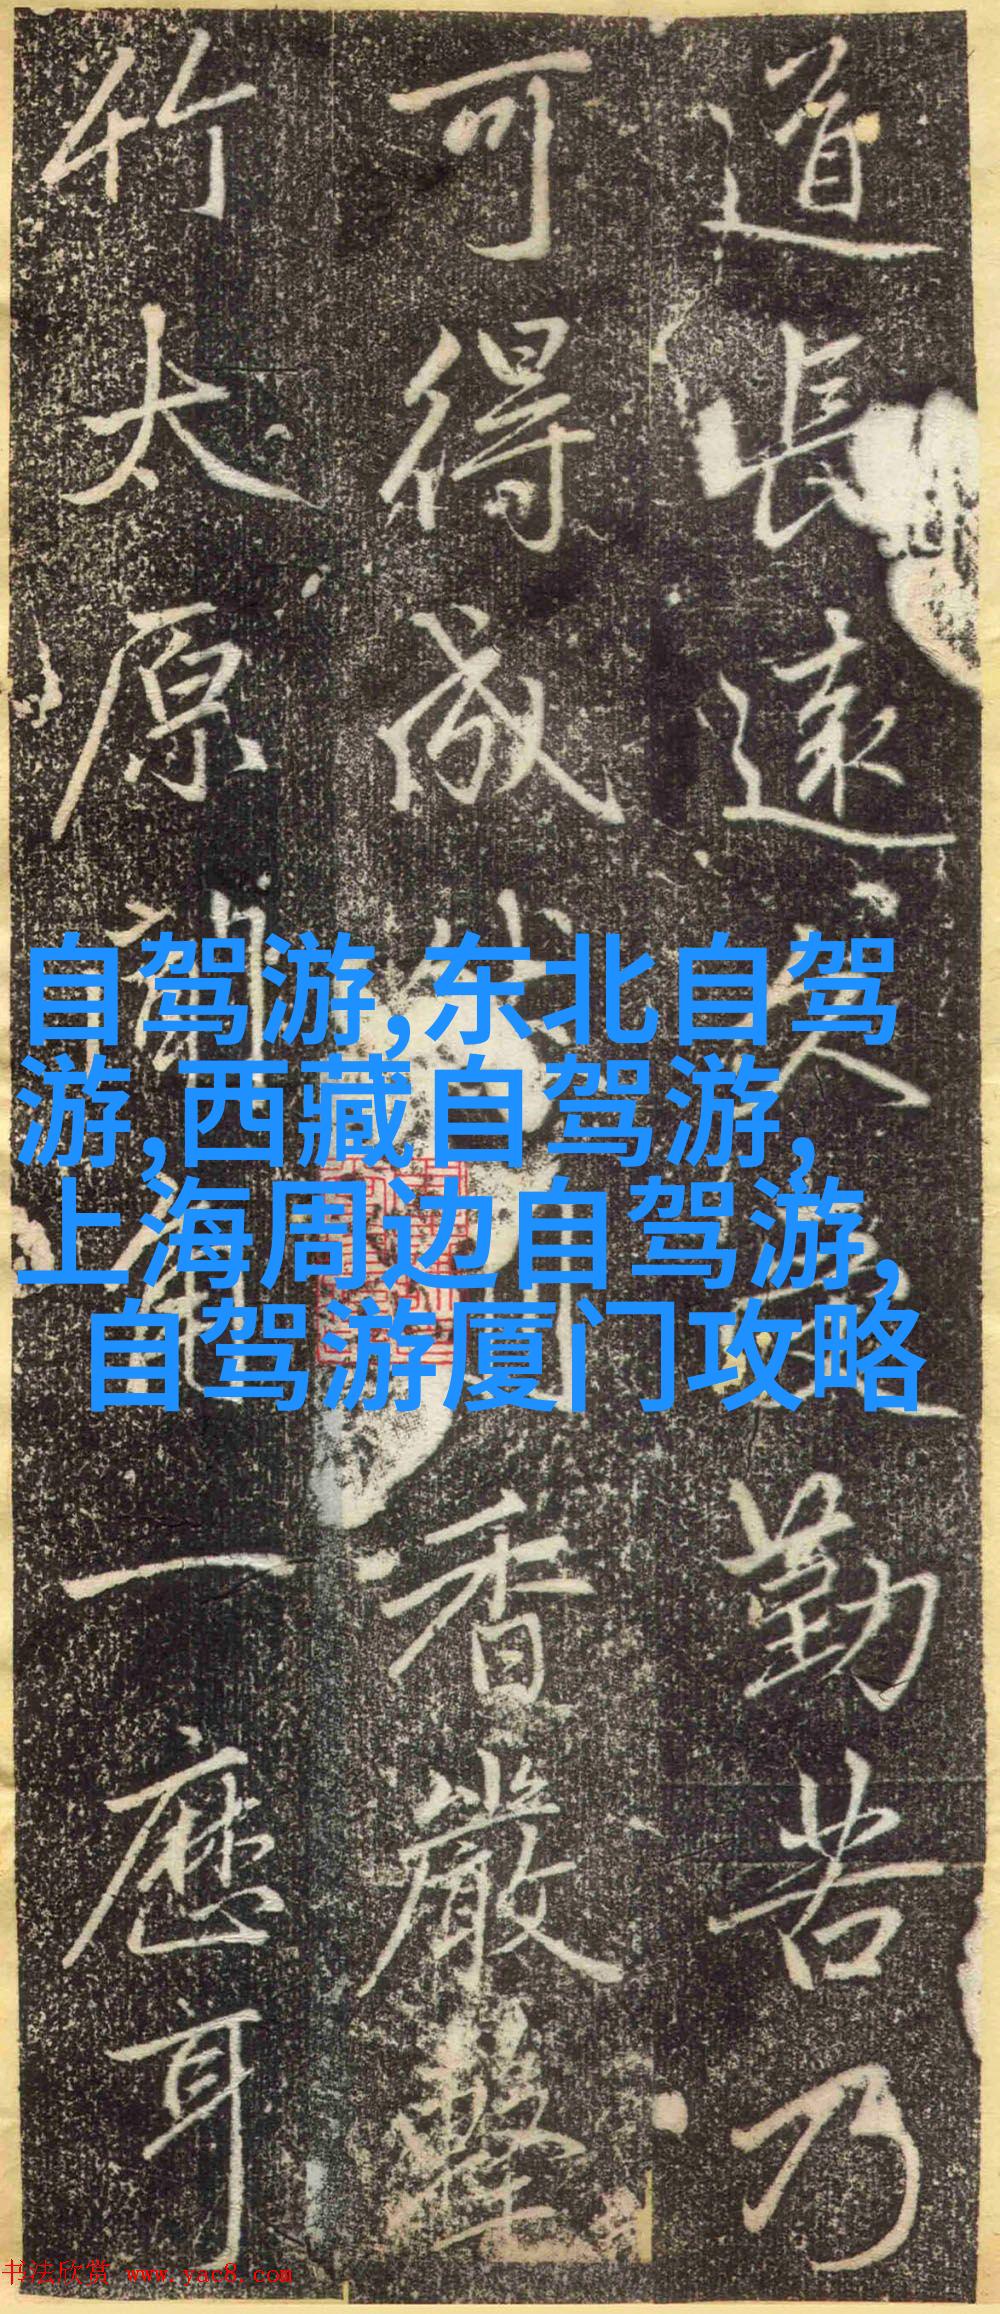 道長遠久勤苦乃
可得成香嚴擊
竹太原聞角一應耳
自驾游,东北自驾
游,西藏自驾游,
上海周边自驾游,
自驾游厦门攻略
书法欣赏 www.yac8.com